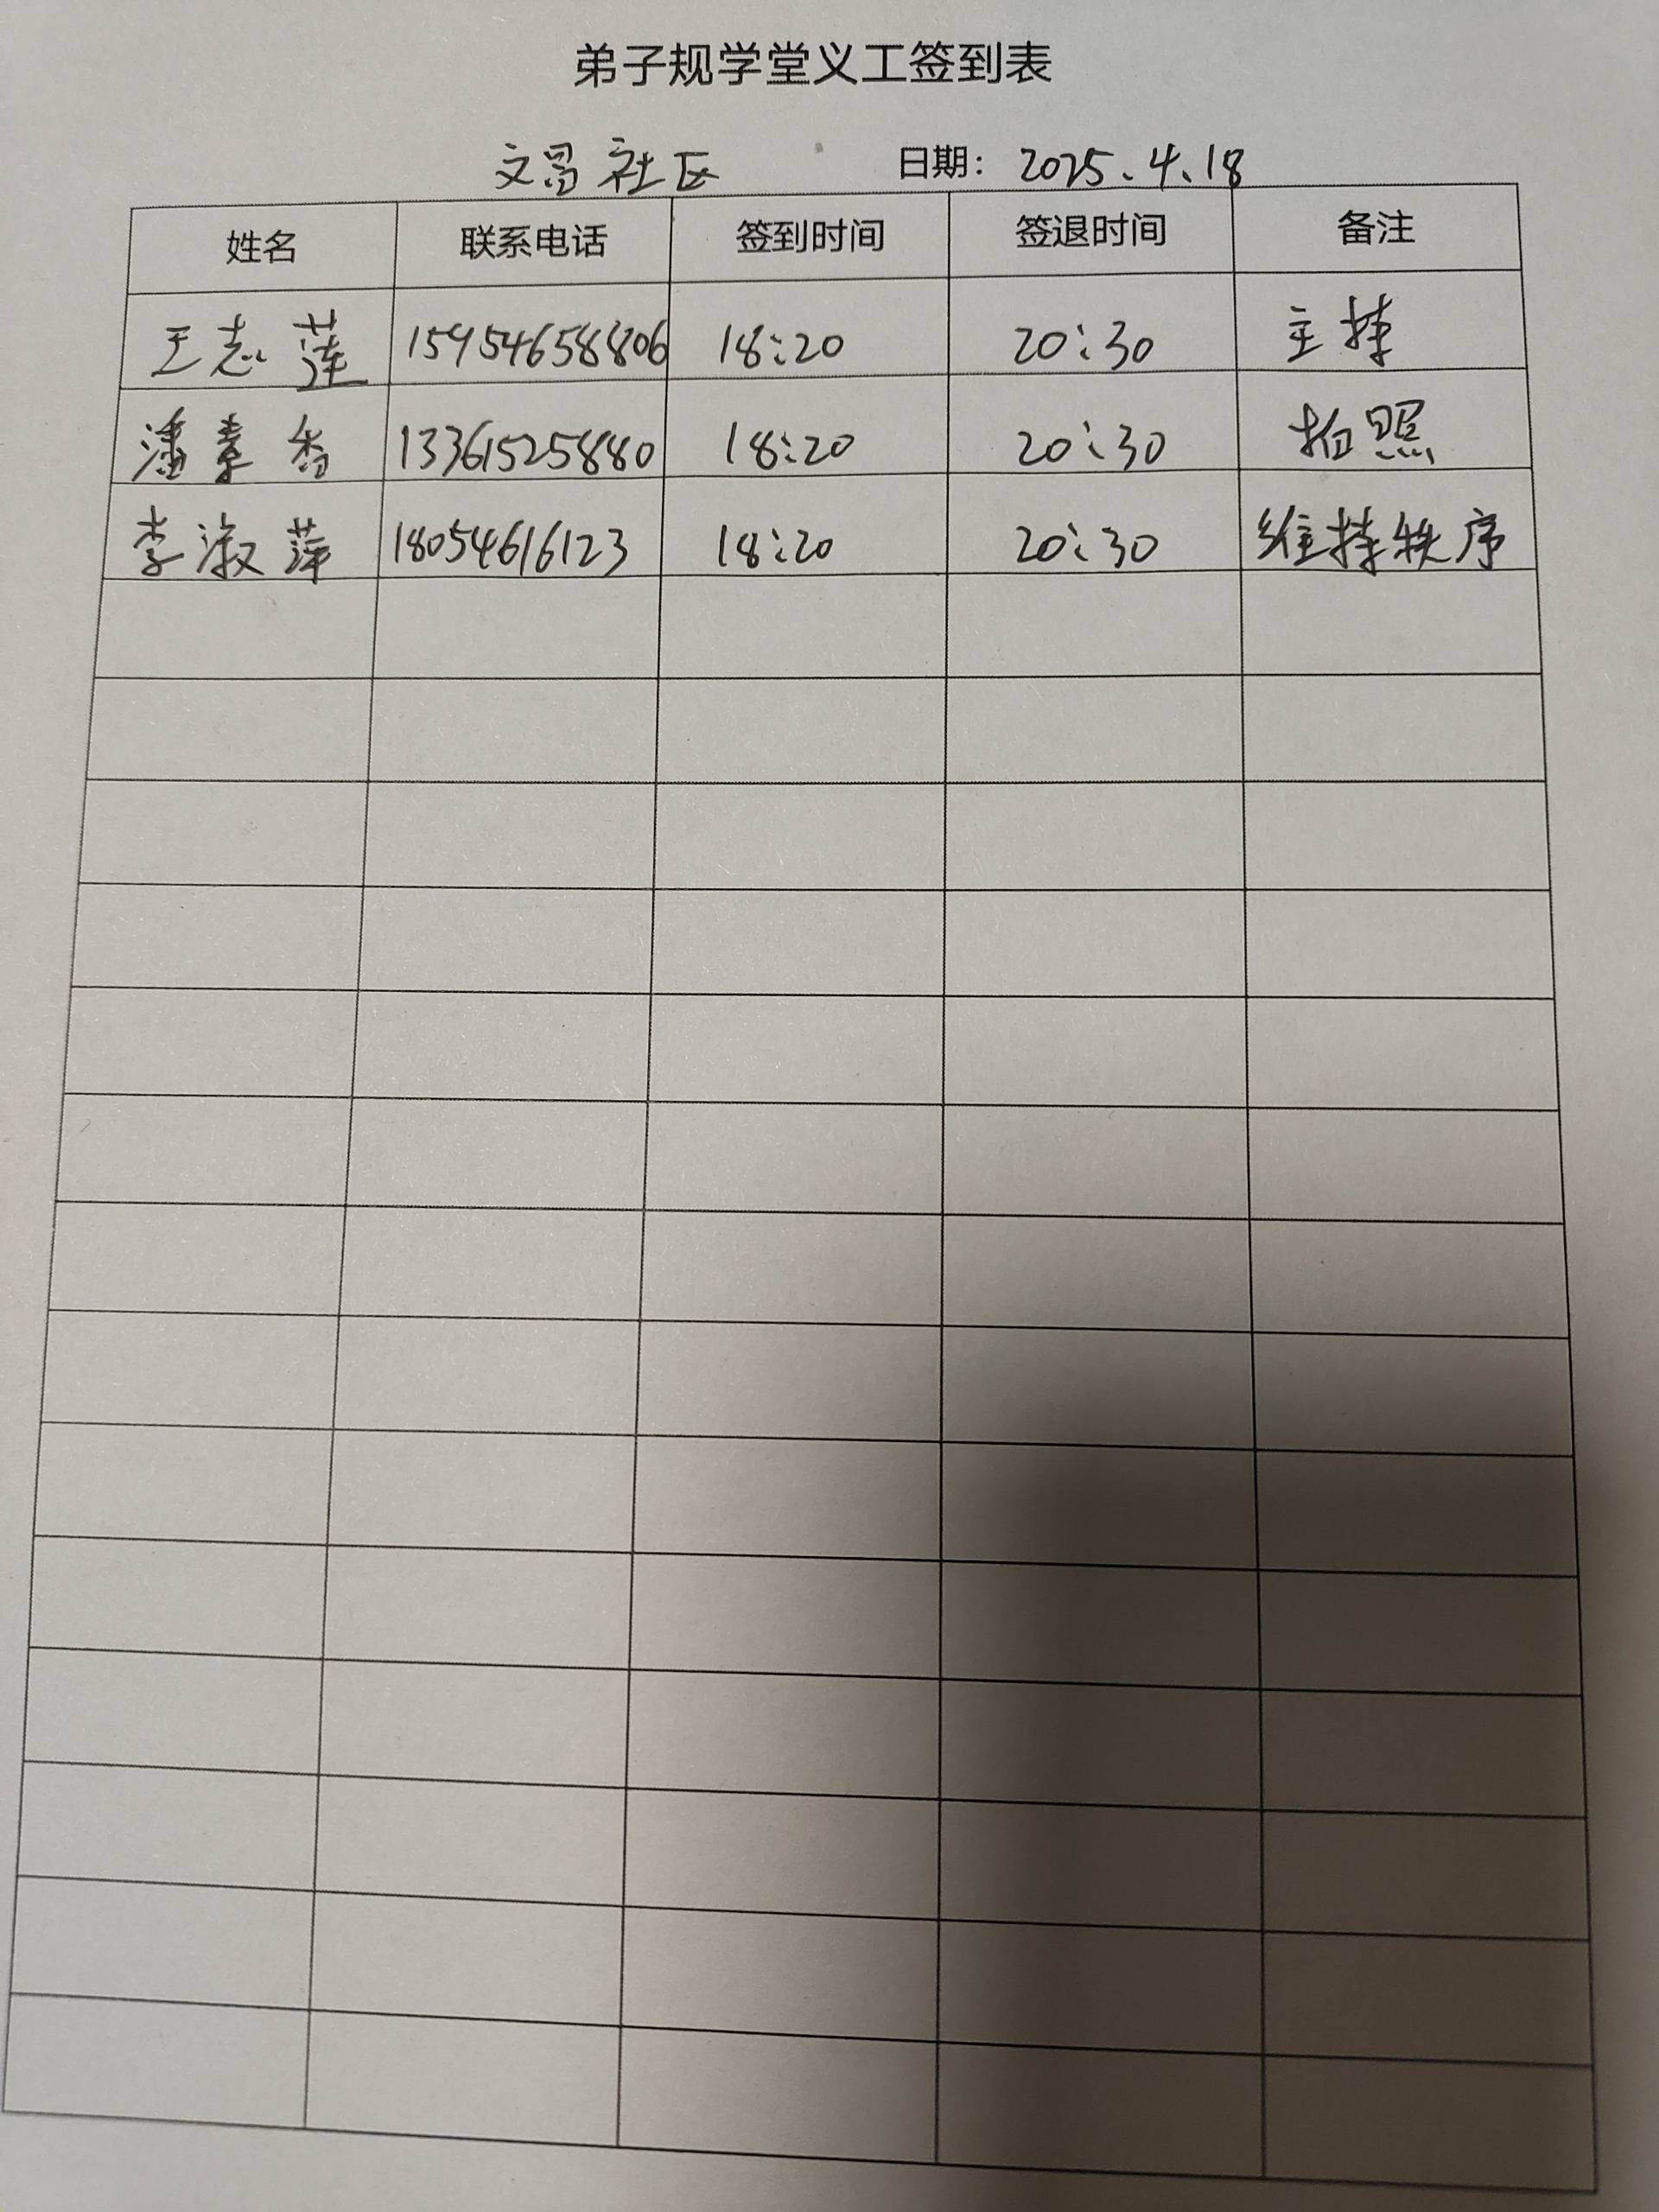 弟子规学堂义工签到表
文昌社区 日期: 2025.4.18
姓名 联系电话 签到时间 签退时间 备注
王志莲 15954658806 18:20 20:30 主持
潘素香 13361525880 18:20 20:30 拍照
李淑萍 18054616123 18:20 20:30 维持秩序